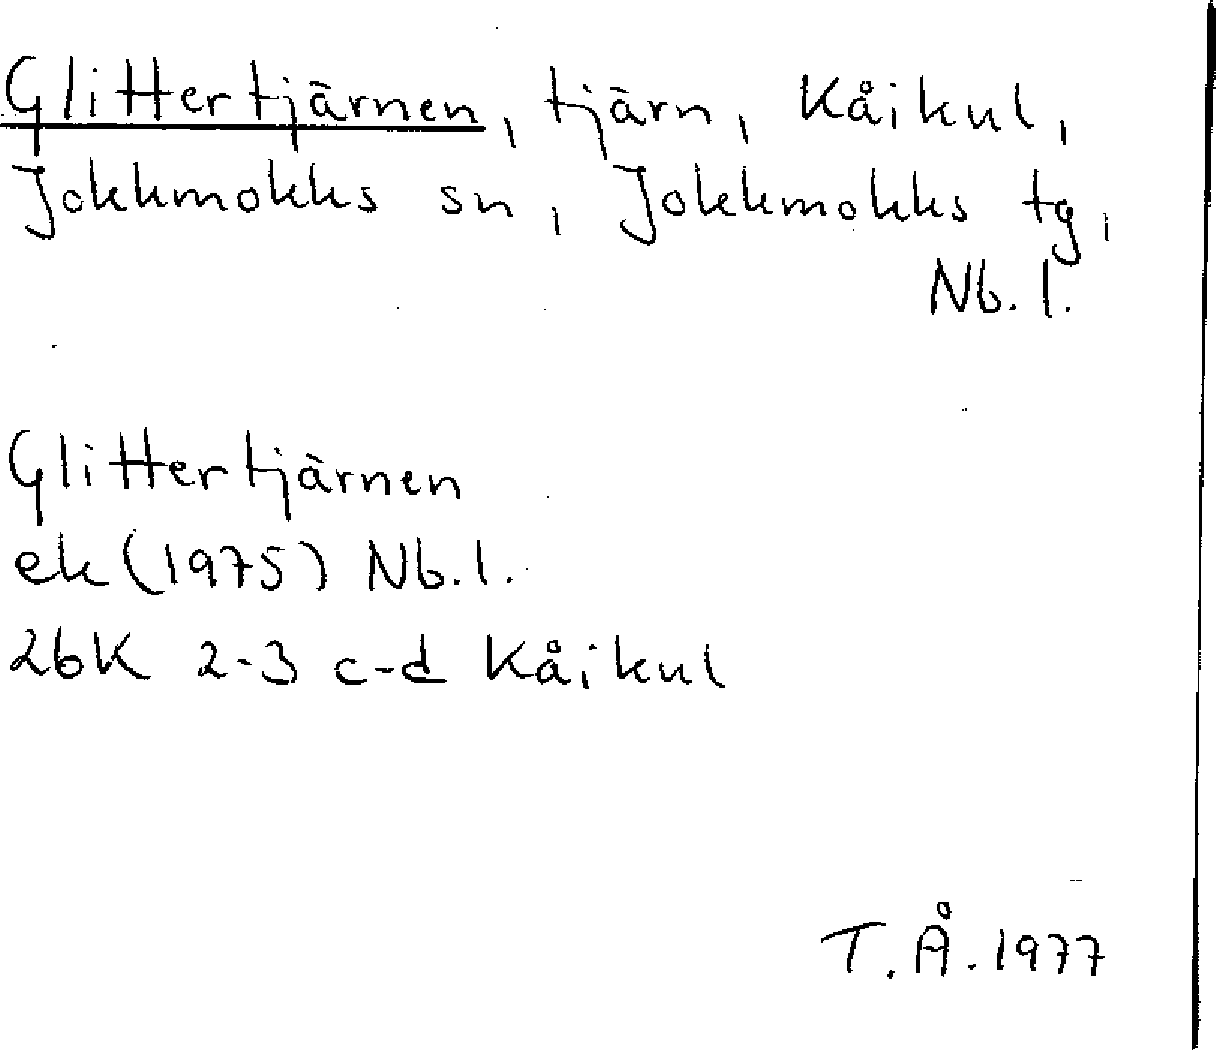 Glittertjärnen, tjärn, Kåikul,
Jokkmokks sn, Jokkmokks tg,
Nb. l.
Glittertjärnen
ek (1975) Nb. l.
26K 2-3 c-d Kåikul
T. Å. 1977